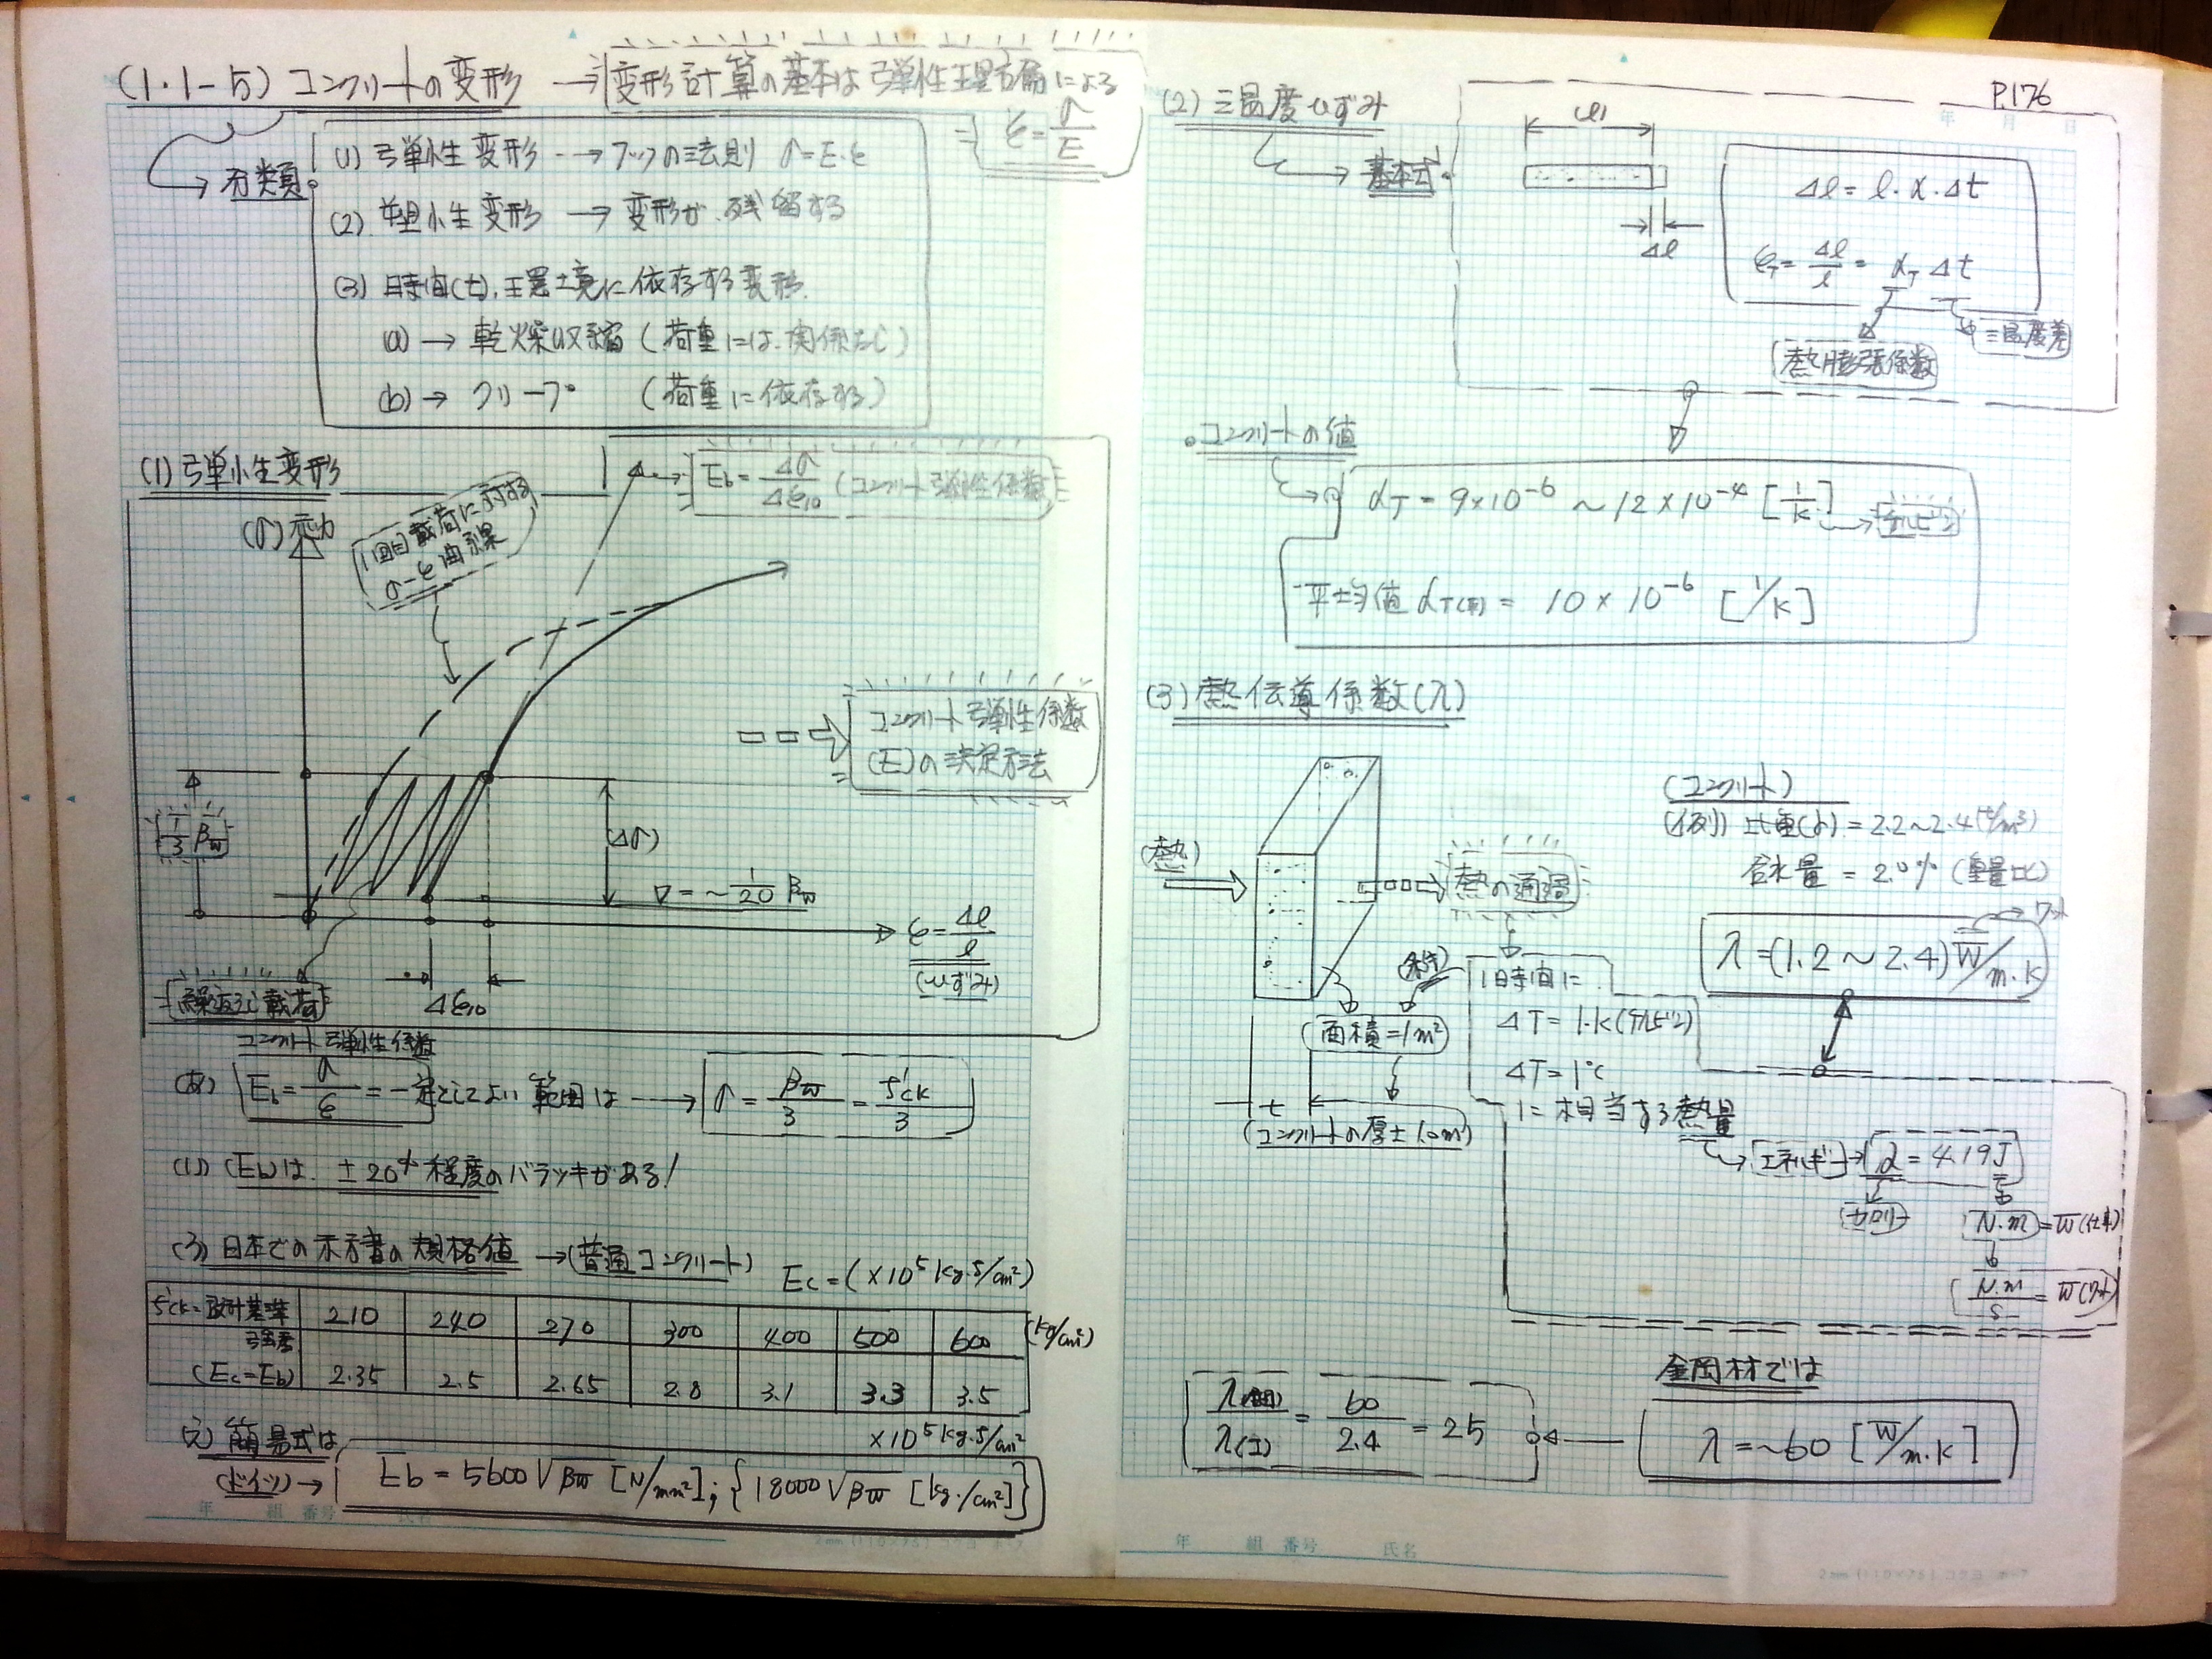 (1・1-5) コンクリートの変形 → 変形計算の基本は弾性理論による
ε = σ/E
分類
(1) 弾性変形 --→ フックの法則 σ=E・ε
(2) 塑性変形 → 変形が残留する
(3) 時間(t), 環境に依存する変形.
(a) → 乾燥収縮 (荷重には関係なし)
(b) → クリープ (荷重に依存する)
(1) 弾性変形
Eb = Δσ/Δε10 (コンクリート弾性係数)
(σ) 応力
1回目載荷に対する
σ-ε曲線
コンクリート弾性係数
(E)の決定方法
1/3 βw
(Δσ)
σ = ~1/20 βw
ε = Δl/l
(ひずみ)
繰返し載荷
Δε10
コンクリート弾性係数
(あ) Eb = σ/ε = 一定としてよい範囲は ---→ σ = βw/3 = f'ck/3
(Eb)は. ±20% 程度のバラツキがある!
(3) 日本での示方書の規格値 → (普通コンクリート) Ec = (×10⁵ kg・f/cm²)
f'ck=設計基準強度 210 240 270 300 400 500 600 (kg/cm²)
(Ec=Eb) 2.35 2.5 2.65 2.8 3.1 3.3 3.5
×10⁵ kg・f/cm²
簡易式は
(ドイツ) → Eb = 5600√βw [N/mm²]; {18000√βw [kg・/cm²]}
年 組 番号 氏名
P.176
年 月 日
(2) 温度ひずみ
基本式
Δl
Δl = l・α・Δt
εT = Δl/l = αT Δt
温度差
熱膨張係数
・コンクリートの値
αT = 9×10⁻⁶ ~ 12×10⁻⁴ [1/K] → ケルビン
平均値 αT(平) = 10×10⁻⁶ [1/K]
(3) 熱伝導係数(λ)
(コンクリート)
(例) 比重(γ) = 2.2~2.4 (t/m³)
含水量 = 2.0% (重量比)
(熱)
熱の通過
ワット
λ = (1.2 ~ 2.4) W/m・K
1時間に
ΔT = 1・K (ケルビン)
ΔT = 1°C
に相当する熱量
面積=1m²
t
(コンクリートの厚さ1.0m)
エネルギー → = 4.19J
カロリー
N・m = W (仕事)
N・m/s = W (ワット)
鋼材では
λ = ~60 [W/m・K]
= 60/2.4 = 25
年 組 番号 氏名